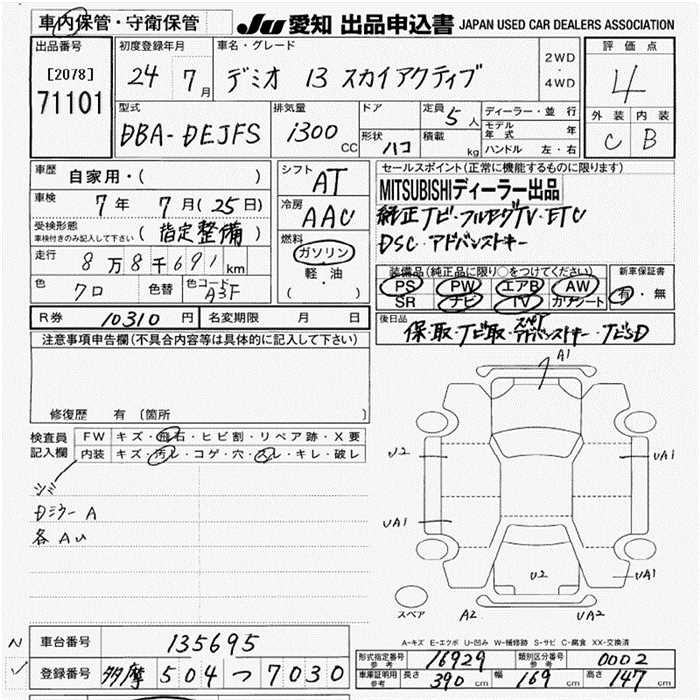 車内保管・守衛保管 JU 愛知 出品申込書 JAPAN USED CAR DEALERS ASSOCIATION
出品番号 初度登録年月 車名・グレード 評価点
[2078] 24 7月 デミオ 13 スカイアクティブ 2WD・4WD 4
71101
型式 排気量 ドア 定員 5人 ディーラー・並行 外装 内装
DBA-DEJFS 1300 CC 形状 ハコ 積載 kg モデル年式 年 C B
ハンドル 左・右
車歴 自家用・( ) シフト AT セールスポイント(正常に機能するものに限ります)
車検 7年 7月(25日) 冷房 AAC MITSUBISHIディーラー出品
受検形態 車検付きのみ記入して下さい (指定整備) 純正ナビ・フルセグTV・ETC
燃料 ガソリン 軽・油 ( ) DSC・アドバンストキー
走行 8万8千691km 装備品(純正品に限り○をつけてください) 新車保証書
PS PW エアB AW 有・無
色 クロ 色替 色コード A3F SR ナビ TV カワシート
R券 10310円 名変期限 月 日 後日品 保・取・ナビ取・スペアアドバンストキー・ナビSD
注意事項申告欄(不具合内容等は具体的に記入して下さい)
修復歴 有 (箇所
検査員記入欄 FW キズ・飛石・ヒビ割・リペア跡・X要
内装 キズ・汚レ・コゲ・穴・スレ・キレ・破レ
シミ
Dミラー A
各 AU
A1
U2 UA1
UA1
U2 UA1
スペア A2 UA2
A-キズ E-エクボ U-凹み W-補修跡 S-サビ C-腐食 XX-交換済
N 車台番号 135695
✓ 登録番号 多摩 504 つ 7030
形式指定番号 参考 16929 類別区分番号 参考 0002
車庫証明用 参考 長さ 390cm 幅 169cm 高さ 147cm